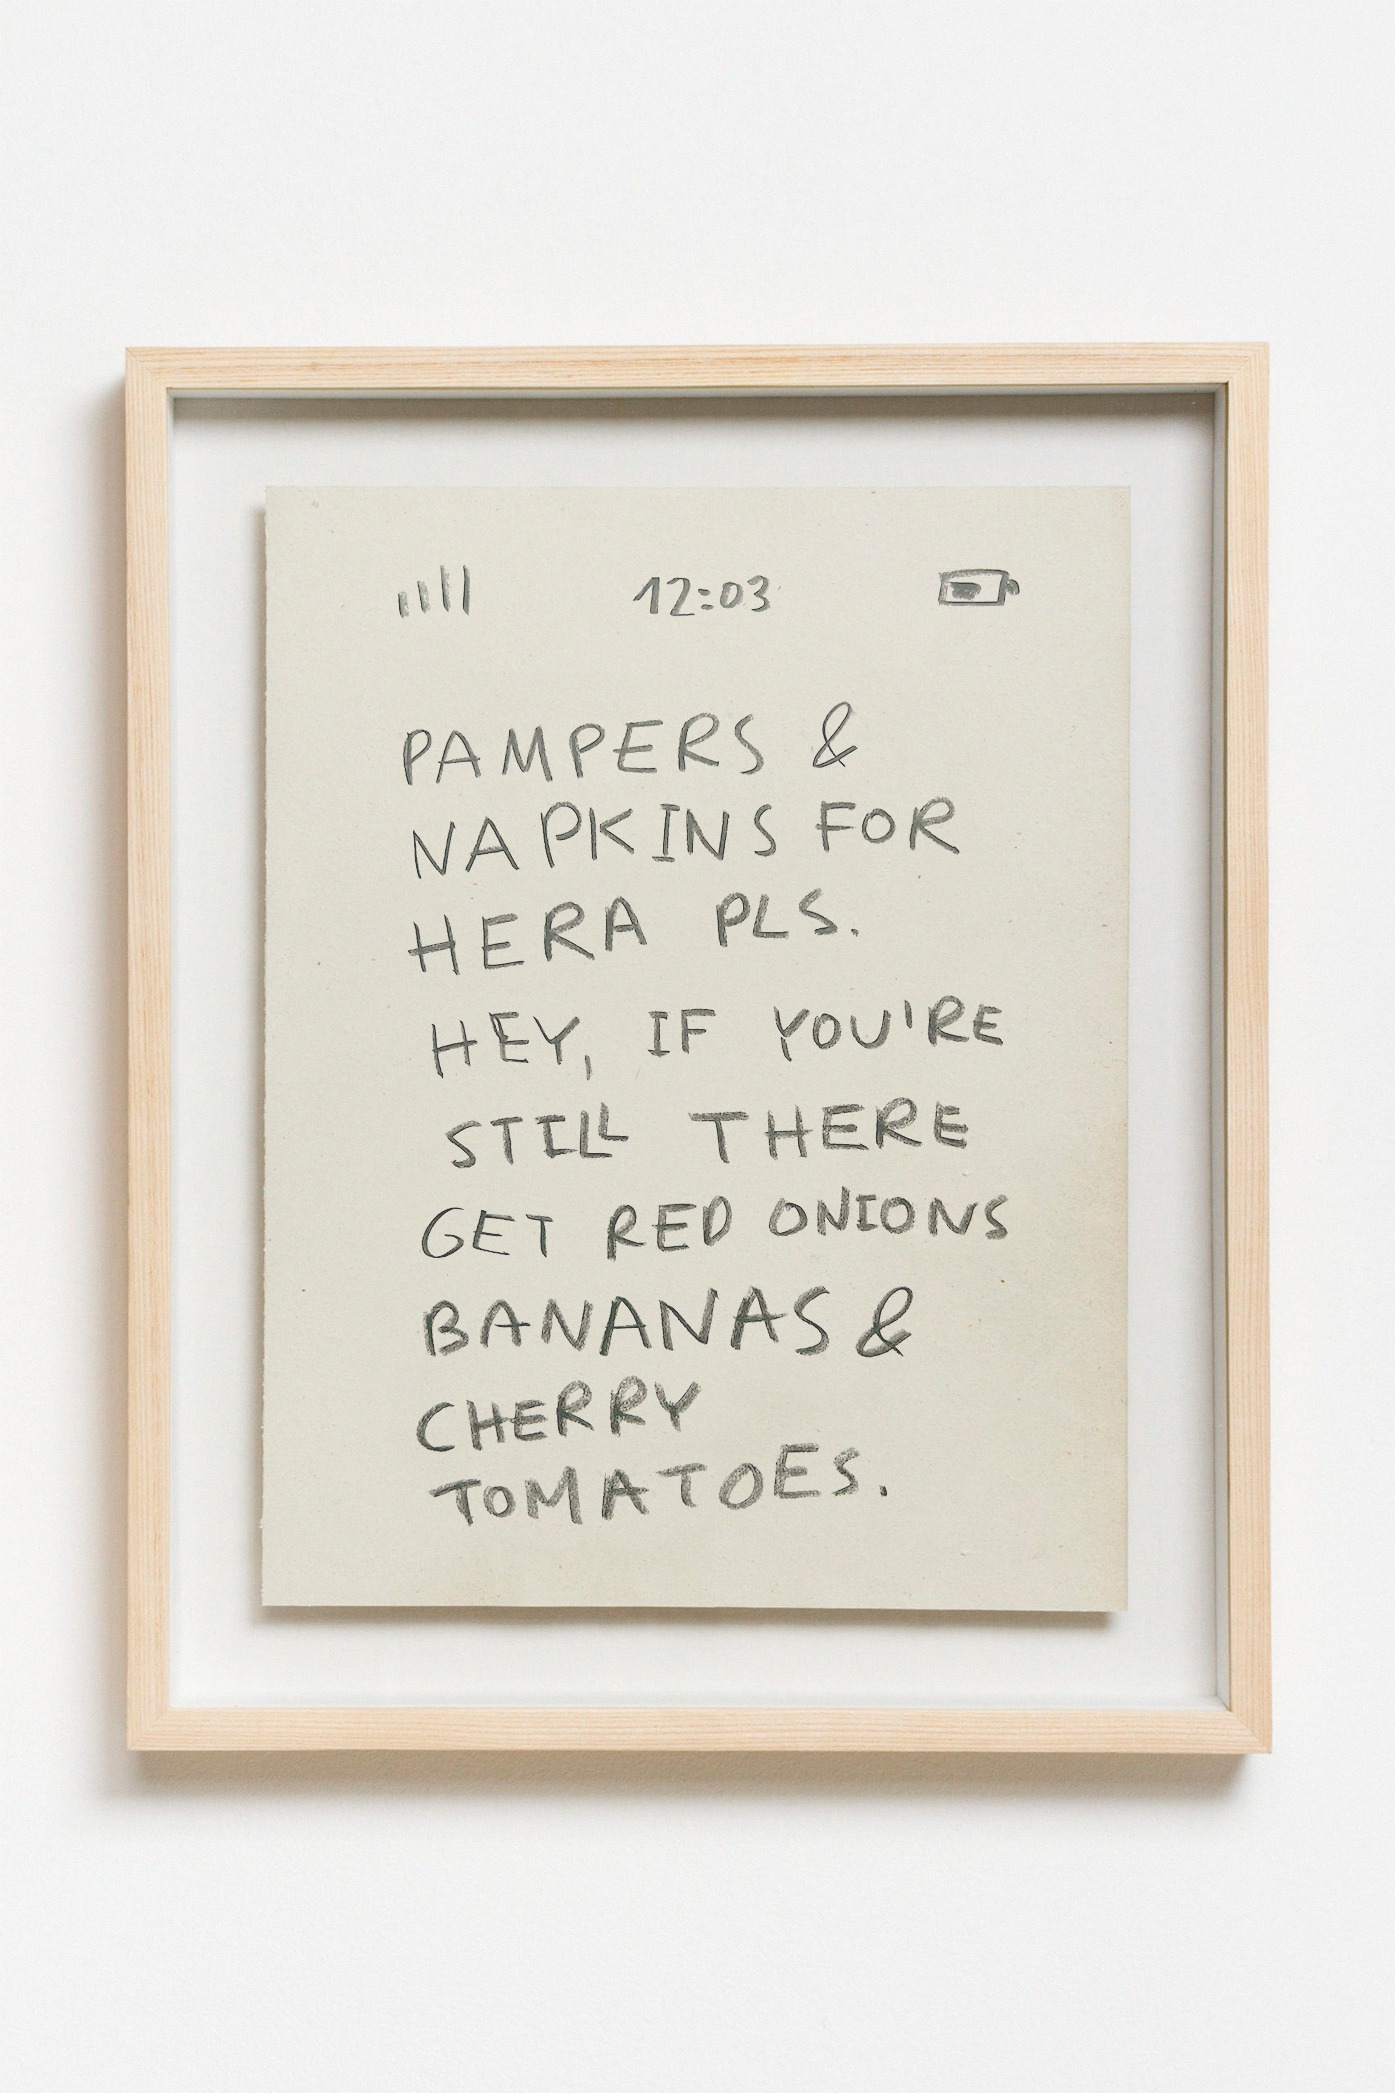 12:03
PAMPERS &
NAPKINS FOR
HERA PLS.
HEY, IF YOU'RE
STILL THERE
GET RED ONIONS
BANANAS &
CHERRY
TOMATOES.